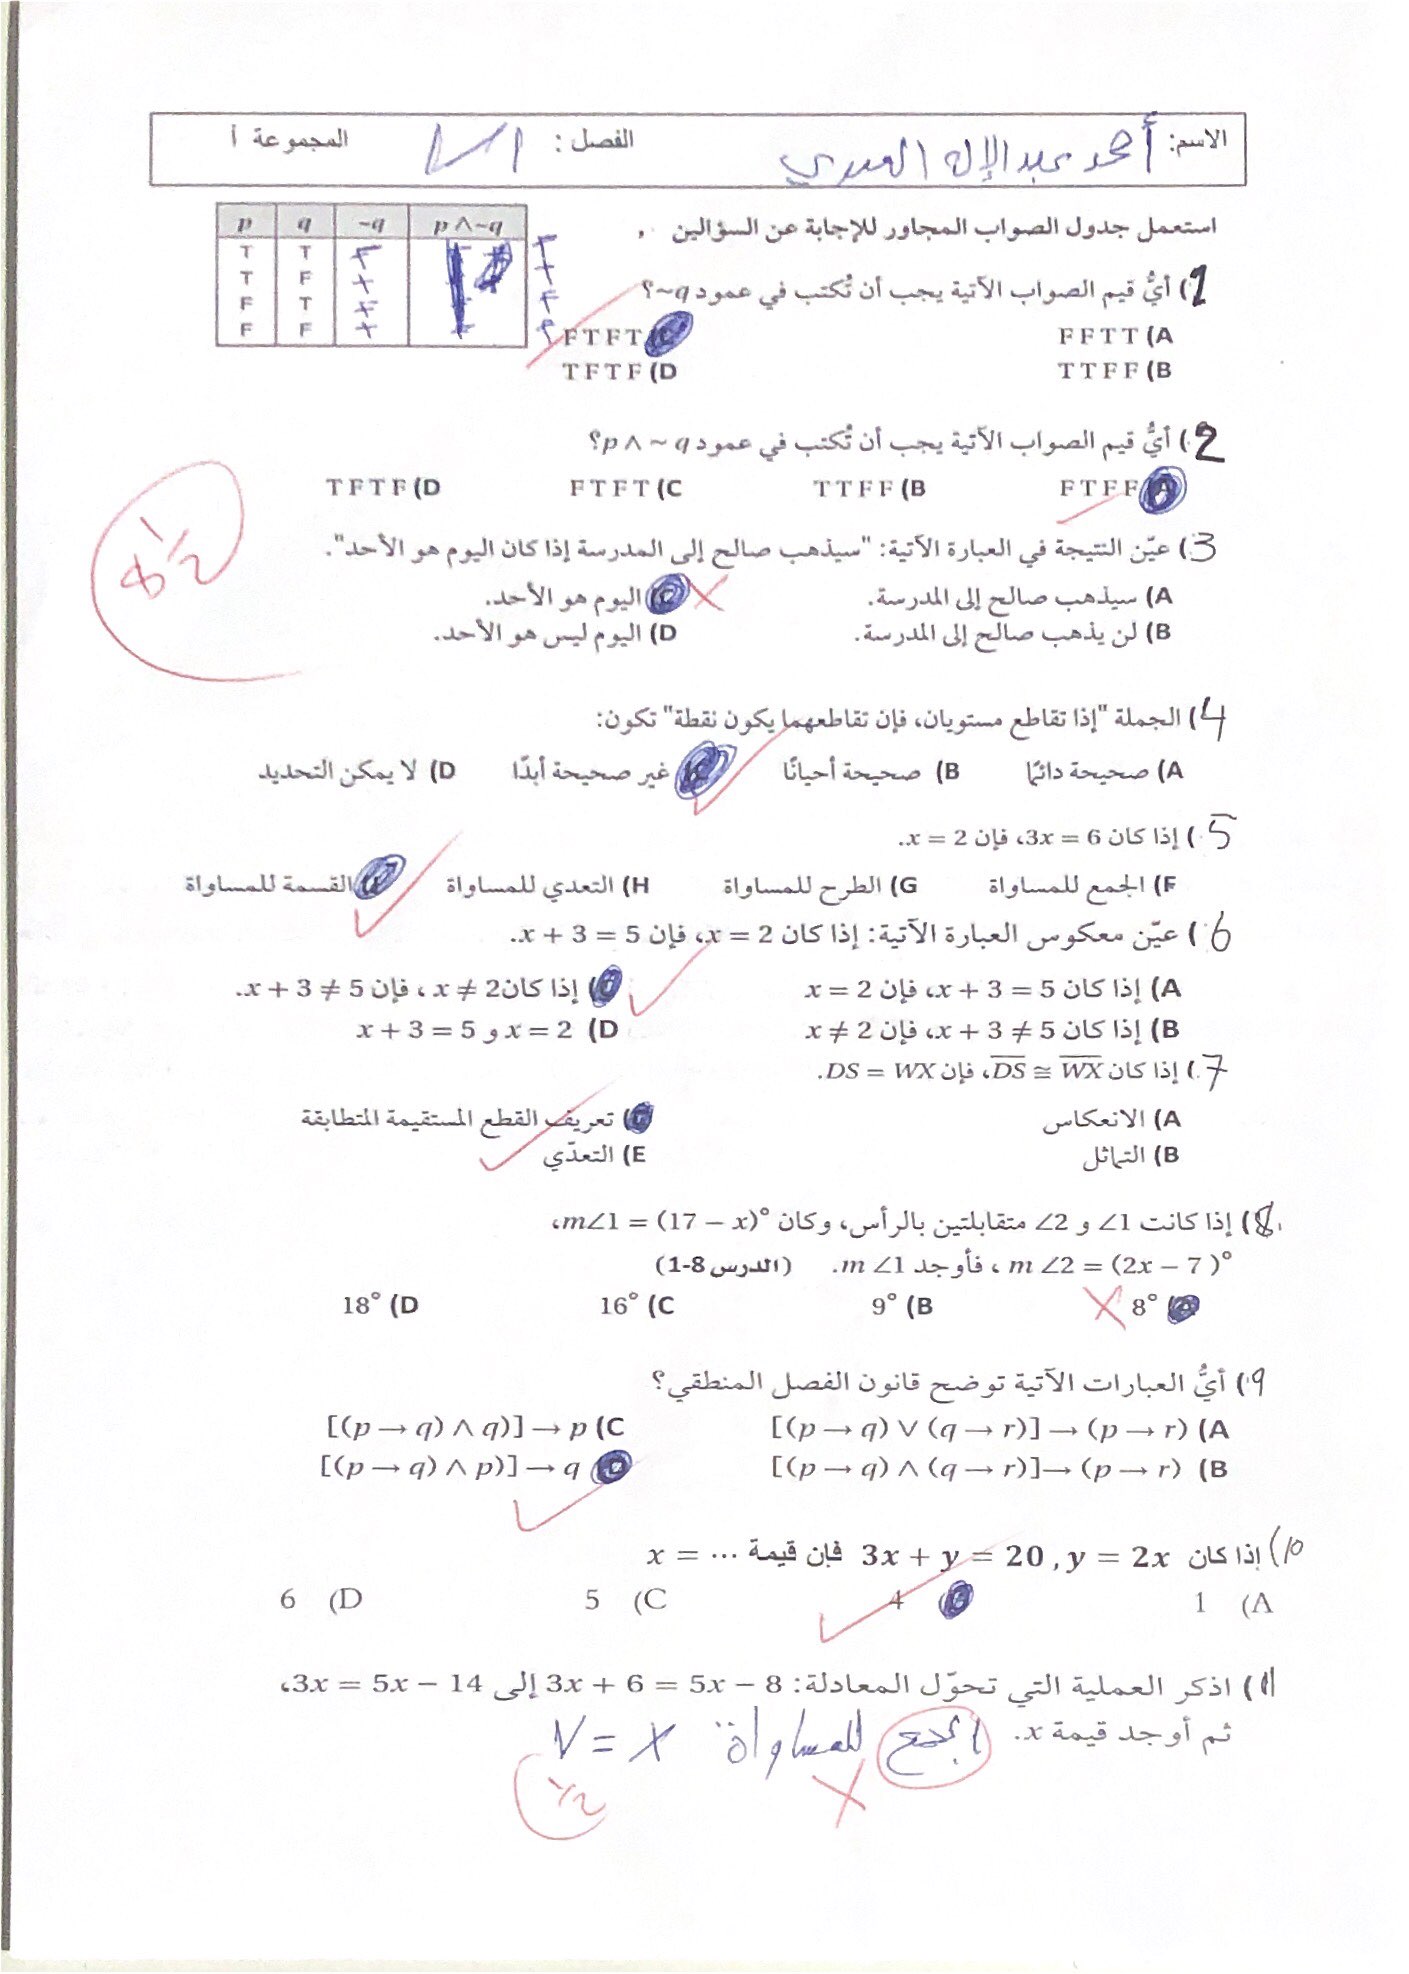 الاسم: أحمد عبدالإله العمري الفصل : المجموعة أ
استعمل جدول الصواب المجاور للإجابة عن السؤالين .
p q ~q p∧~q
T T F F
T F T T
F T F F
F F T F
1) أيُّ قيم الصواب الآتية يجب أن تُكتب في عمود q~؟
A) F F T T C) F T F T
B) T T F F D) T F T F
2) أيُّ قيم الصواب الآتية يجب أن تُكتب في عمود p ∧ ~ q؟
A) F T F F B) T T F F C) F T F T D) T F T F
3) عيّن النتيجة في العبارة الآتية: "سيذهب صالح إلى المدرسة إذا كان اليوم هو الأحد".
A) سيذهب صالح إلى المدرسة. C) اليوم هو الأحد.
B) لن يذهب صالح إلى المدرسة. D) اليوم ليس هو الأحد.
8 1/2
4) الجملة "إذا تقاطع مستويان، فإن تقاطعهما يكون نقطة" تكون:
A) صحيحة دائمًا B) صحيحة أحيانًا C) غير صحيحة أبدًا D) لا يمكن التحديد
5) إذا كان 3x = 6، فإن x = 2.
F) الجمع للمساواة G) الطرح للمساواة H) التعدي للمساواة القسمة للمساواة
6) عيّن معكوس العبارة الآتية: إذا كان x = 2، فإن x + 3 = 5.
A) إذا كان x + 3 = 5، فإن x = 2 ) إذا كان x ≠ 2 ، فإن x + 3 ≠ 5.
B) إذا كان x + 3 ≠ 5، فإن x ≠ 2 D) x = 2 و x + 3 = 5
7) إذا كان DS ≅ WX، فإن DS = WX.
A) الانعكاس ) تعريف القطع المستقيمة المتطابقة
B) التماثل E) التعدّي
8) إذا كانت ∠1 و ∠2 متقابلتين بالرأس، وكان m∠1 = (17 − x)°،
m ∠2 = (2x − 7 )° ، فأوجد m ∠1. (الدرس 8-1)
8° B) 9° C) 16° D) 18°
9) أيُّ العبارات الآتية توضح قانون الفصل المنطقي؟
A) [(p → q) ∨ (q → r)] → (p → r) C) [(p → q) ∧ q)] → p
B) [(p → q) ∧ (q → r)]→ (p → r) D) [(p → q) ∧ p)] → q
10) إذا كان 3x + y = 20 , y = 2x فإن قيمة ... = x
A) 1 ) 4 C) 5 D) 6
11) اذكر العملية التي تحوّل المعادلة: 3x + 6 = 5x − 8 إلى 3x = 5x − 14،
ثم أوجد قيمة x. الجمع للمساواة: x = ٧
1/2